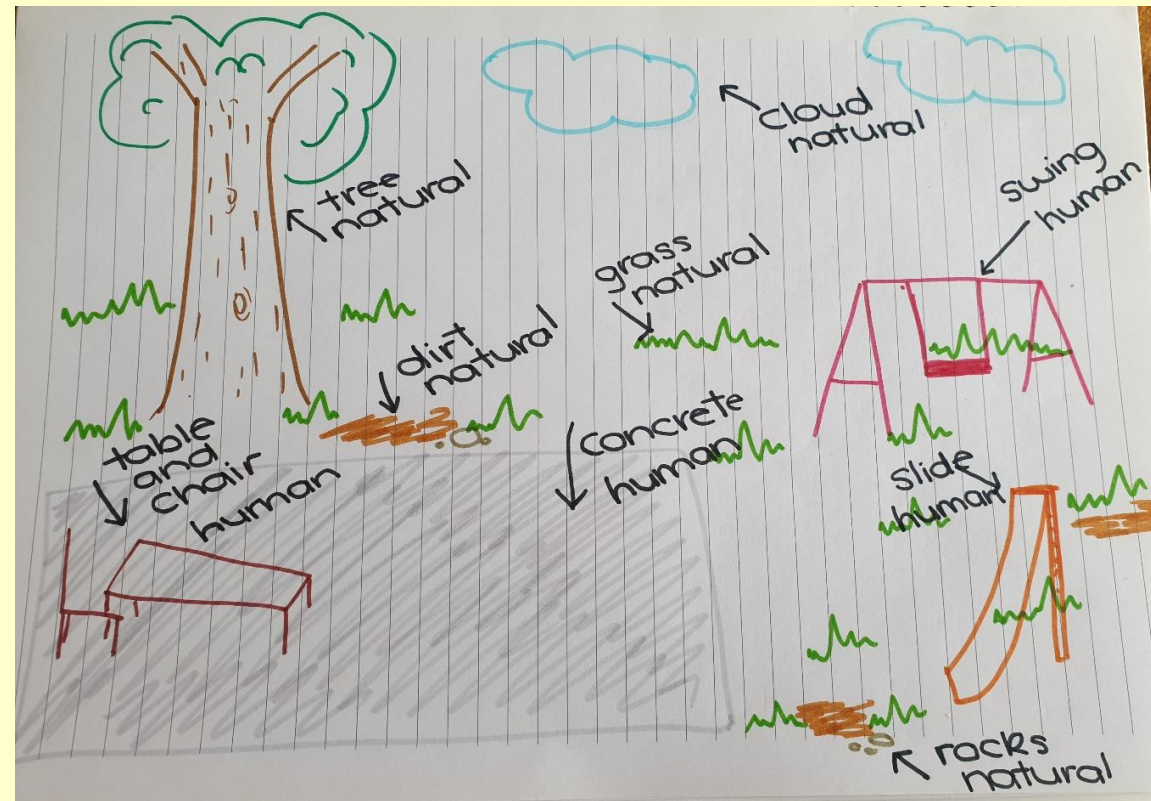 cloud
natural
tree
natural
swing
human
grass
natural
dirt
natural
table
and
chair
human
concrete
human
slide
human
rocks
natural